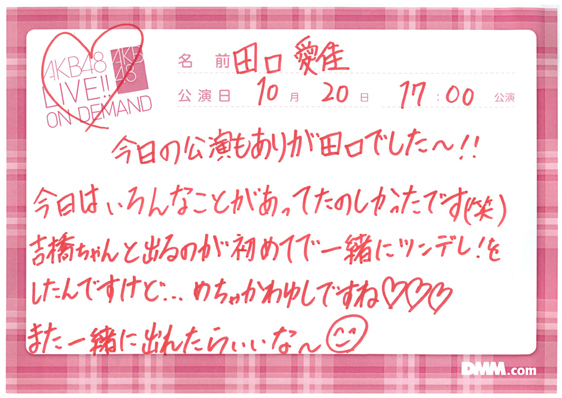 AKB48
LIVE!!
ON DEMAND
AKB
48
名 前 田口 愛佳
公演日 10 月 20 日 17:00 公演
今日の公演もありが田口でした〜!!
今日はいろんなことがあってたのしかったです(笑)
吉橋ちゃんと出るのが初めてで一緒にツンデレ!を
したんですけど...めちゃかわゆしですね♡♡♡
また一緒に出れたらいいな〜
DMM.com